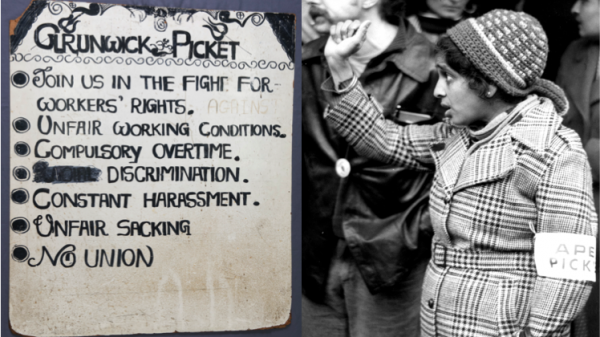 GRUNWICK PICKET
JOIN US IN THE FIGHT FOR
WORKERS' RIGHTS. AGAINST
UNFAIR WORKING CONDITIONS.
COMPULSORY OVERTIME.
DISCRIMINATION.
CONSTANT HARASSMENT.
UNFAIR SACKING
NO UNION
APE
PICK